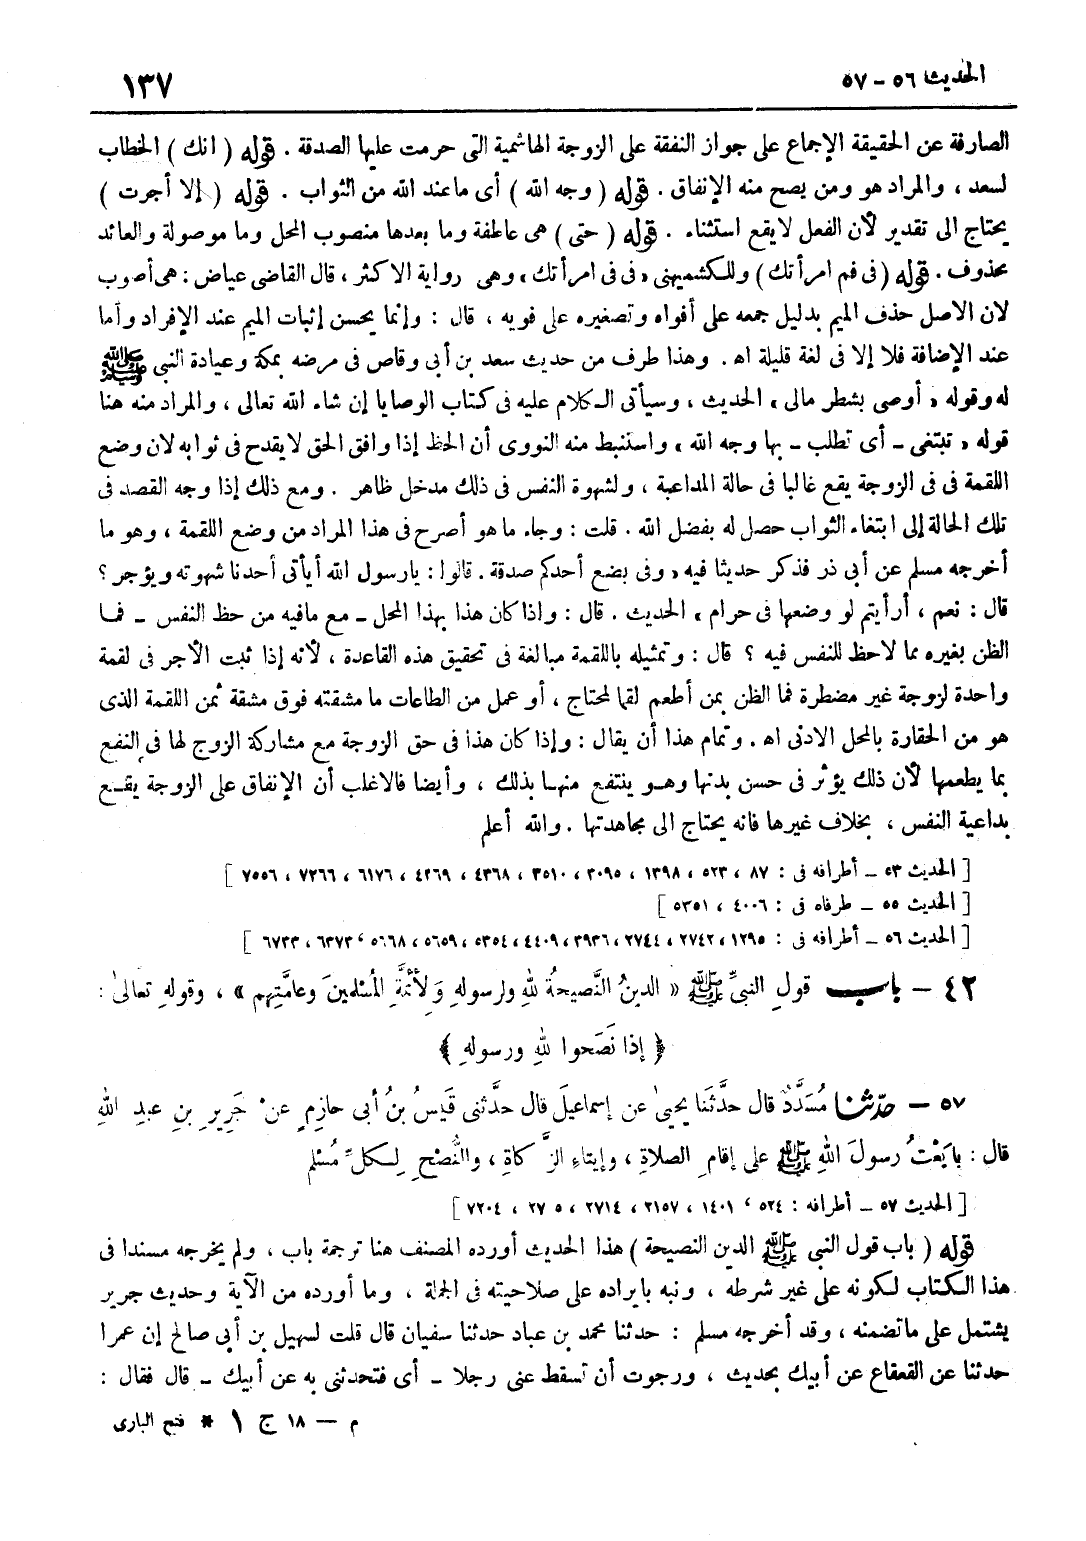 الحديث ٥٦ - ٥٧
١٣٧
الصارفة عن الحقيقة الإجماع على جواز النفقة على الزوجة الهاشمية التى حرمت عليها الصدقة . قوله ( انك ) الخطاب
لسعد ، والمراد هو ومن يصح منه الإنفاق . قوله ( وجه الله ) أى ما عند الله من الثواب . قوله ( إلا أجرت )
يحتاج الى تقدير لأن الفعل لا يقع استثناء . قوله ( حتى ) هى عاطفة وما بعدها منصوب المحل وما موصولة والعائد
محذوف . قوله ( فى فم امرأتك ) وللكشميهنى « فى فى امرأتك » وهى رواية الاكثر ، قال القاضى عياض : هى أصوب
لان الاصل حذف الميم بدليل جمعه على أفواه وتصغيره على فويه ، قال : وإنما يحسن إثبات الميم عند الإفراد وأما
عند الإضافة فلا إلا فى لغة قليلة اه . وهذا طرف من حديث سعد بن أبى وقاص فى مرضه بمكة وعيادة النبى ﷺ
له وقوله « أوصى بشطر مالى » الحديث ، وسيأتى الكلام عليه فى كتاب الوصايا إن شاء الله تعالى ، والمراد منه هنا
قوله « تبتغى - أى تطلب - بها وجه الله » واستنبط منه النووى أن الحظ إذا وافق الحق لا يقدح فى ثوابه لان وضع
اللقمة فى فى الزوجة يقع غالبا فى حالة المداعبة ، ولشهوة النفس فى ذلك مدخل ظاهر . ومع ذلك إذا وجه القصد فى
تلك الحالة إلى ابتغاء الثواب حصل له بفضل الله . قلت : وجاء ما هو أصرح فى هذا المراد من وضع اللقمة ، وهو ما
أخرجه مسلم عن أبى ذر فذكر حديثا فيه « وفى بضع أحدكم صدقة . قالوا : يارسول الله أيأتى أحدنا شهوته ويؤجر ؟
قال : نعم ، أرأيتم لو وضعها فى حرام » الحديث . قال : واذا كان هذا بهذا المحل - مع مافيه من حظ النفس - فما
الظن بغيره مما لاحظ للنفس فيه ؟ قال : وتمثيله باللقمة مبالغة فى تحقيق هذه القاعدة ، لأنه إذا ثبت الأجر فى لقمة
واحدة لزوجة غير مضطرة فما الظن بمن أطعم لقما لمحتاج ، أو عمل من الطاعات ما مشقته فوق مشقة ثمن اللقمة الذى
هو من الحقارة بالمحل الادنى اه . وتمام هذا أن يقال : وإذا كان هذا فى حق الزوجة مع مشاركة الزوج لها فى النفع
بما يطعمها لأن ذلك يؤثر فى حسن بدنها وهو ينتفع منها بذلك ، وأيضا فالاغلب أن الإنفاق على الزوجة يقع
بداعية النفس ، بخلاف غيرها فانه يحتاج الى مجاهدتها . والله أعلم
[ الحديث ٥٣ - أطرافه فى : ٨٧ ، ٥٢٣ ، ١٣٩٨ ، ٣٠٩٥ ، ٣٥١٠ ، ٤٣٦٨ ، ٤٣٦٩ ، ٦١٧٦ ، ٧٢٦٦ ، ٧٥٥٦ ]
[ الحديث ٥٥ - طرفاه فى : ٤٠٠٦ ، ٥٣٥١ ]
[ الحديث ٥٦ - أطرافه فى : ١٢٩٥ ، ٢٧٤٢ ، ٢٧٤٤ ، ٣٩٣٦ ، ٤٤٠٩ ، ٥٣٥٤ ، ٥٦٥٩ ، ٥٦٦٨ ، ٦٣٧٣ ، ٦٧٣٣ ]
٤٢ - باب قولِ النبىِّ ﷺ « الدينُ النَّصيحةُ للهِ ولرسولهِ وَلأئمَّةِ المُسْلمينَ وعامَّتِهم » ، وقولهِ تعالىٰ :
﴿ إذا نَصَحوا للهِ ورسولهِ ﴾
٥٧ - حدّثنا مُسَدَّدٌ قال حدَّثَنا يحيىٰ عن إسماعيلَ قال حدَّثنى قَيسُ بنُ أبى حازمٍ عنْ جَريرِ بنِ عبدِ اللهِ
قال : بايَعْتُ رسولَ اللهِ ﷺ على إقامِ الصلاةِ ، وإيتاءِ الزَّكاةِ ، والنُّصْحِ لِكلِّ مُسْلم
[ الحديث ٥٧ - أطرافه : ٥٢٤ ، ١٤٠١ ، ٢١٥٧ ، ٢٧١٤ ، ٢٧٠٥ ، ٧٢٠٤ ]
قوله ( باب قول النبى ﷺ الدين النصيحة ) هذا الحديث أورده المصنف هنا ترجمة باب ، ولم يخرجه مسندا فى
هذا الكتاب لكونه على غير شرطه ، ونبه بايراده على صلاحيته فى الجملة ، وما أورده من الآية وحديث جرير
يشتمل على ماتضمنه ، وقد أخرجه مسلم : حدثنا محمد بن عباد حدثنا سفيان قال قلت لسهيل بن أبى صالح إن عمرا
حدثنا عن القعقاع عن أبيك بحديث ، ورجوت أن تسقط عنى رجلا - أى فتحدثنى به عن أبيك - قال فقال :
م - ١٨ ج ١ * فتح البارى